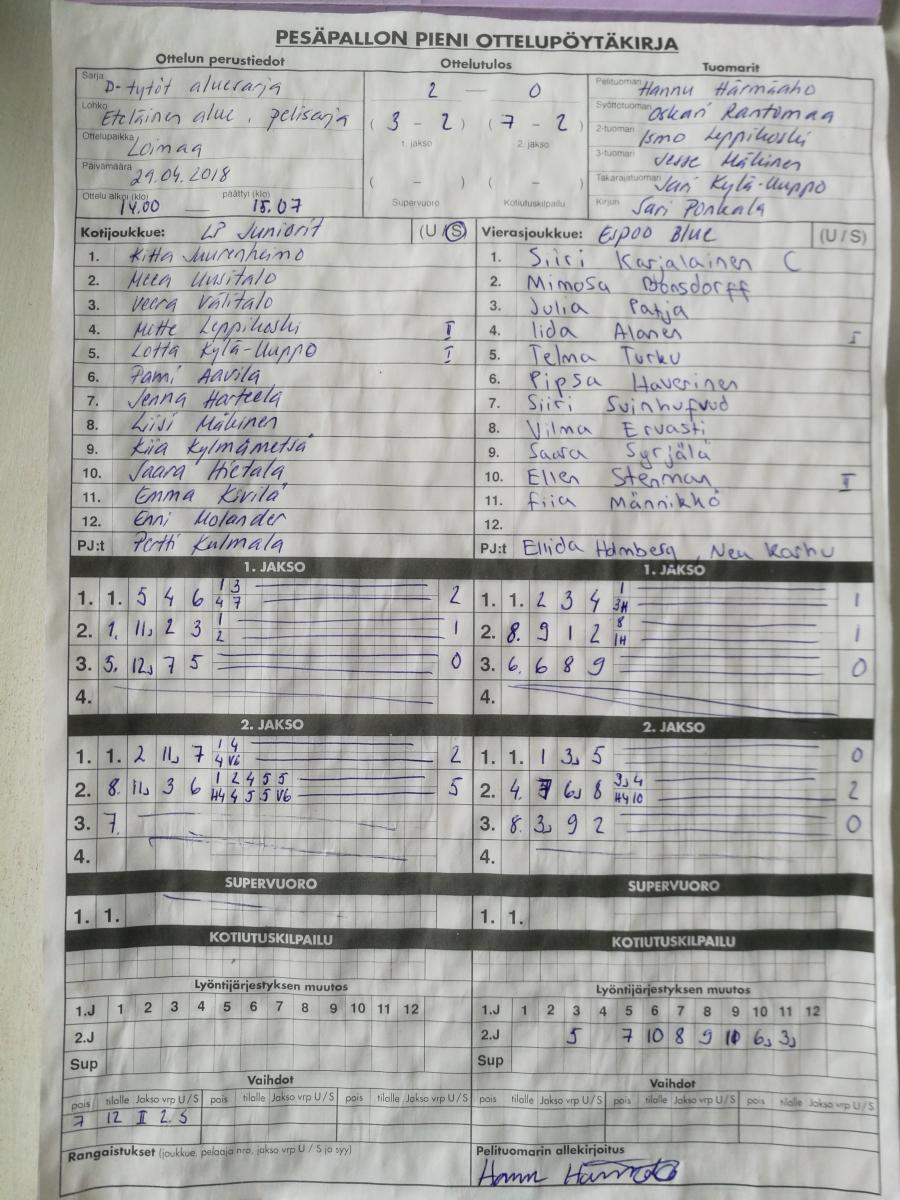 PESÄPALLON PIENI OTTELUPÖYTÄKIRJA
Ottelun perustiedot Ottelutulos Tuomarit
Sarja D-tytöt aluesarja 2 — 0 Pelituomari Hannu Härmäaho
Lohko Eteläinen alue, pelisarja ( 3 - 2 ) ( 7 - 2 ) Syöttötuomari Oskari Rantamaa
Ottelupaikka Loimaa 1. jakso 2. jakso 2-tuomari Ismo Leppikoski
Päivämäärä 29.04.2018 3-tuomari Jesse Mäkinen
( - ) ( - ) Takarajatuomari Jari Kylä-Uuppo
Ottelu alkoi (klo) 14.00 — päättyi (klo) 15.07 Supervuoro Kotiutuskilpailu Kirjuri Sari Ponkala
Kotijoukkue: LP Juniorit (U / S) Vierasjoukkue: Espoo Blue (U / S)
1. Juurenheimo 1. Siiri Karjalainen C
2. Meea Uusitalo 2. Mimosa Bonsdorff
3. Veera Välitalo 3. Julia Patja
4. Mette Leppikoski II 4. Iida Alanen I
5. Lotta Kylä-Uuppo I 5. Telma Turku
6. Pami Aavila 6. Pipsa Haverinen
7. Jenna Harteela 7. Siiri Svinhufvud
8. Liisi Mäkinen 8. Vilma Ervasti
9. Kiia Kylmämetsä 9. Saara Syrjälä
10. Saara Hietala 10. Ellen Stenman II
11. Emma Kivilä 11. Fiia Männikkö
12. Enni Molander 12.
PJ:t Pertti Kulmala PJ:t Ellida Holmberg, Neu Kashu
1. JAKSO 1. JAKSO
1. 1. 5 4 6 1 3 2 1. 1. 2 3 4 1 1
4 7 3H
2. 1. 11, 2 3 1 1 2. 8. 9 1 2 8 1
2 1H
3. 5. 12, 7 5 0 3. 6. 6 8 9 0
4. 4.
2. JAKSO 2. JAKSO
1. 1. 2 11, 7 1 4 2 1. 1. 1 3, 5 0
4 V6
2. 8. 11, 3 6 1 2 4 5 5 5 2. 4. 6, 8 3, 4 2
H4 4 5 5 V6 H4 10
3. 7. 3. 8. 3, 9 2 0
4. 4.
SUPERVUORO SUPERVUORO
1. 1. 1. 1.
KOTIUTUSKILPAILU KOTIUTUSKILPAILU
Lyöntijärjestyksen muutos Lyöntijärjestyksen muutos
1.J 1 2 3 4 5 6 7 8 9 10 11 12 1.J 1 2 3 4 5 6 7 8 9 10 11 12
2.J 2.J 5 7 10 8 9 10 6, 3,
Sup Sup
Vaihdot Vaihdot
pois tilalle Jakso vrp U / S pois tilalle Jakso vrp U / S pois tilalle Jakso vrp U / S pois tilalle Jakso vrp U / S pois tilalle Jakso vrp U / S pois tilalle Jakso vrp U / S
7 12 II 2. S
Rangaistukset (joukkue, pelaaja nro, jakso vrp U / S ja syy) Pelituomarin allekirjoitus